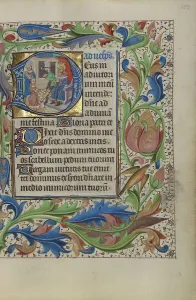 Eus in
adiutori
um meū
intende
Dn̄e ad
me festina Gloria patri
Dixit dn̄s domino meo
sede a dextris meis
Donec ponam inimicos tu
os scabellum pedum tuorum
Virgam virtutis tue emit
tet dominus ex syon dn̄are in
medio inimicorum tuorū